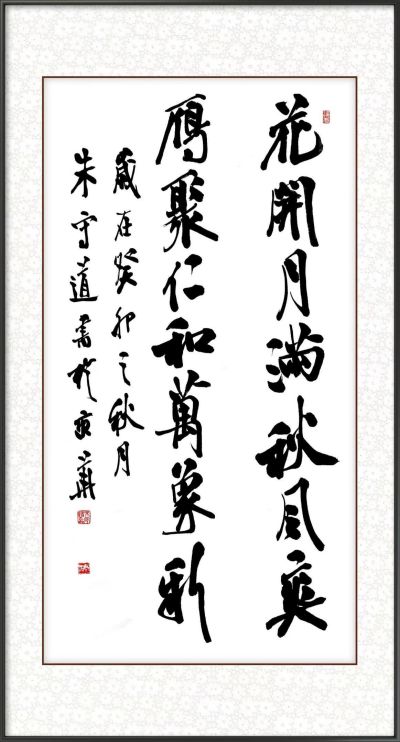 花開月滿秋風爽
雁聚仁和萬象新
歲在癸卯之秋月
朱守道書於京華